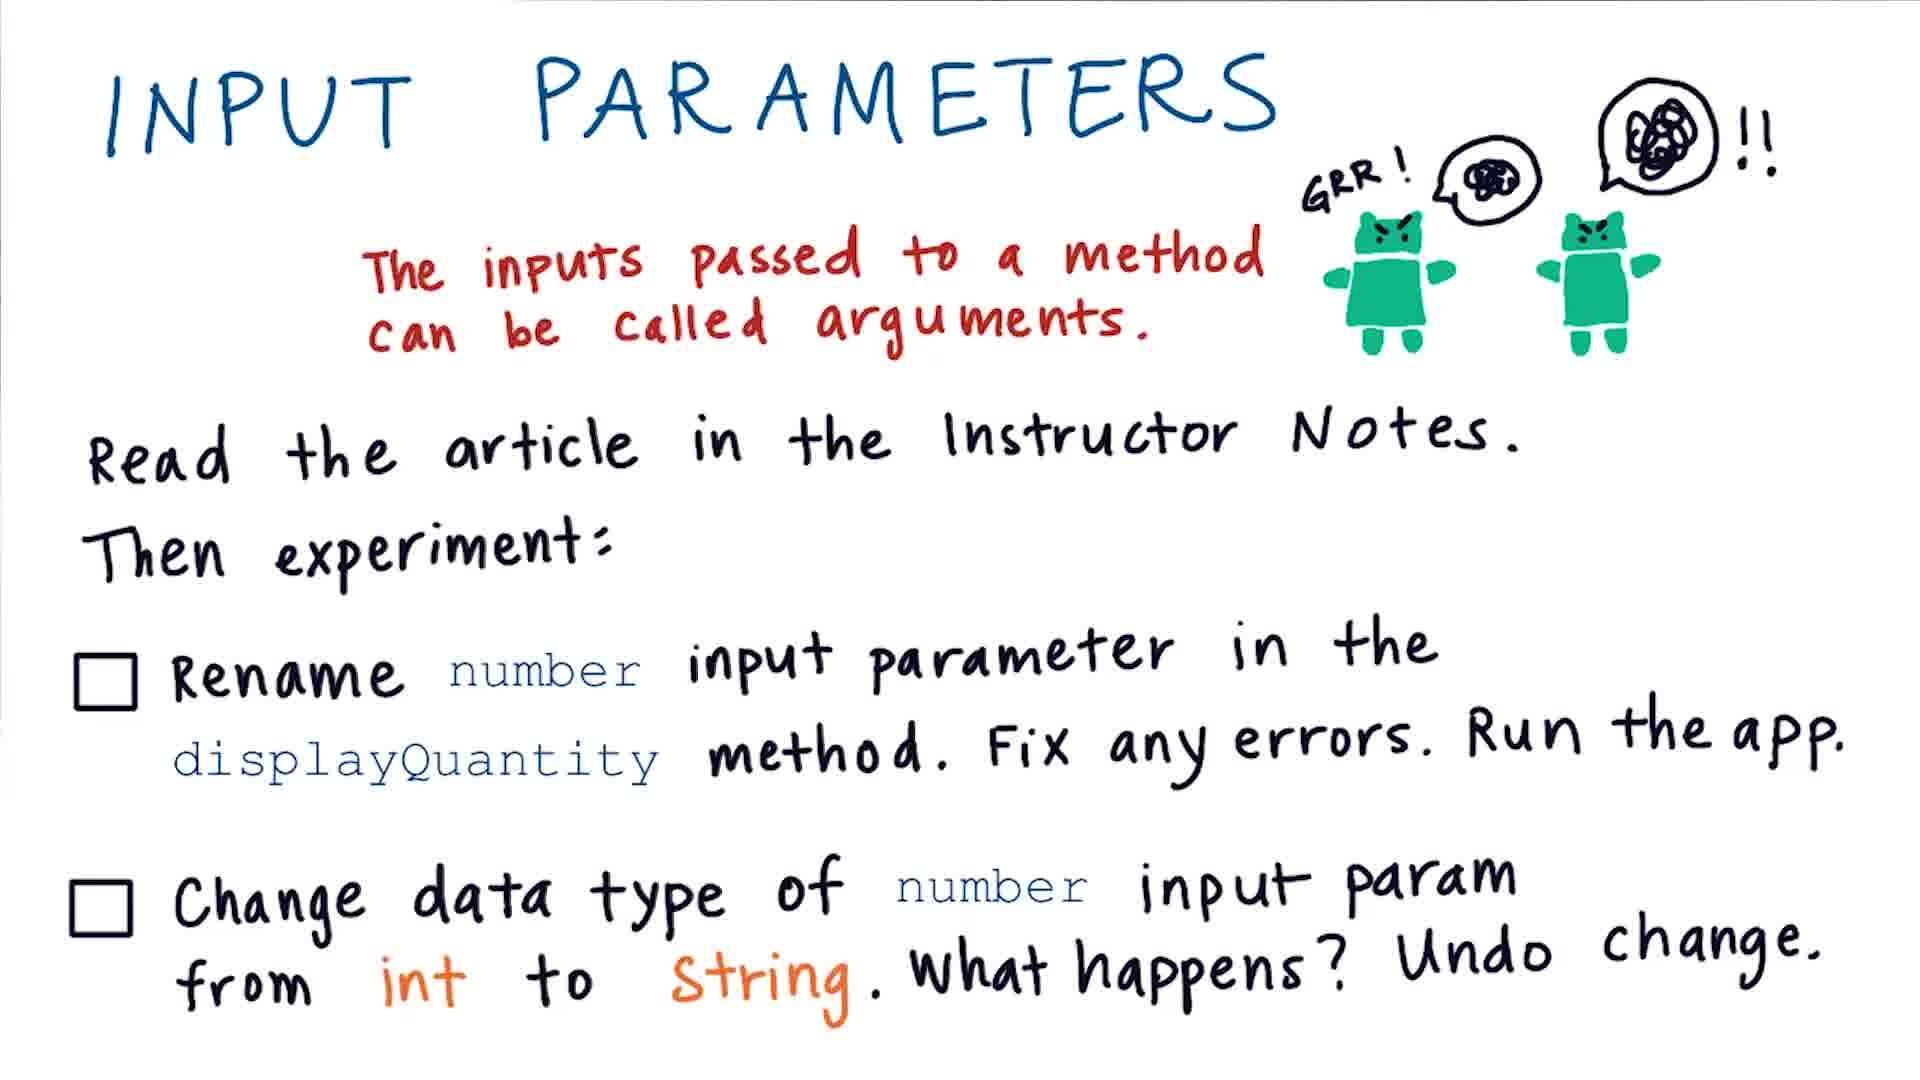 INPUT PARAMETERS
GRR! !!
The inputs passed to a method
can be called arguments.
Read the article in the Instructor Notes.
Then experiment:
Rename number input parameter in the
displayQuantity method. Fix any errors. Run the app.
Change data type of number input param
from int to String. What happens? Undo change.